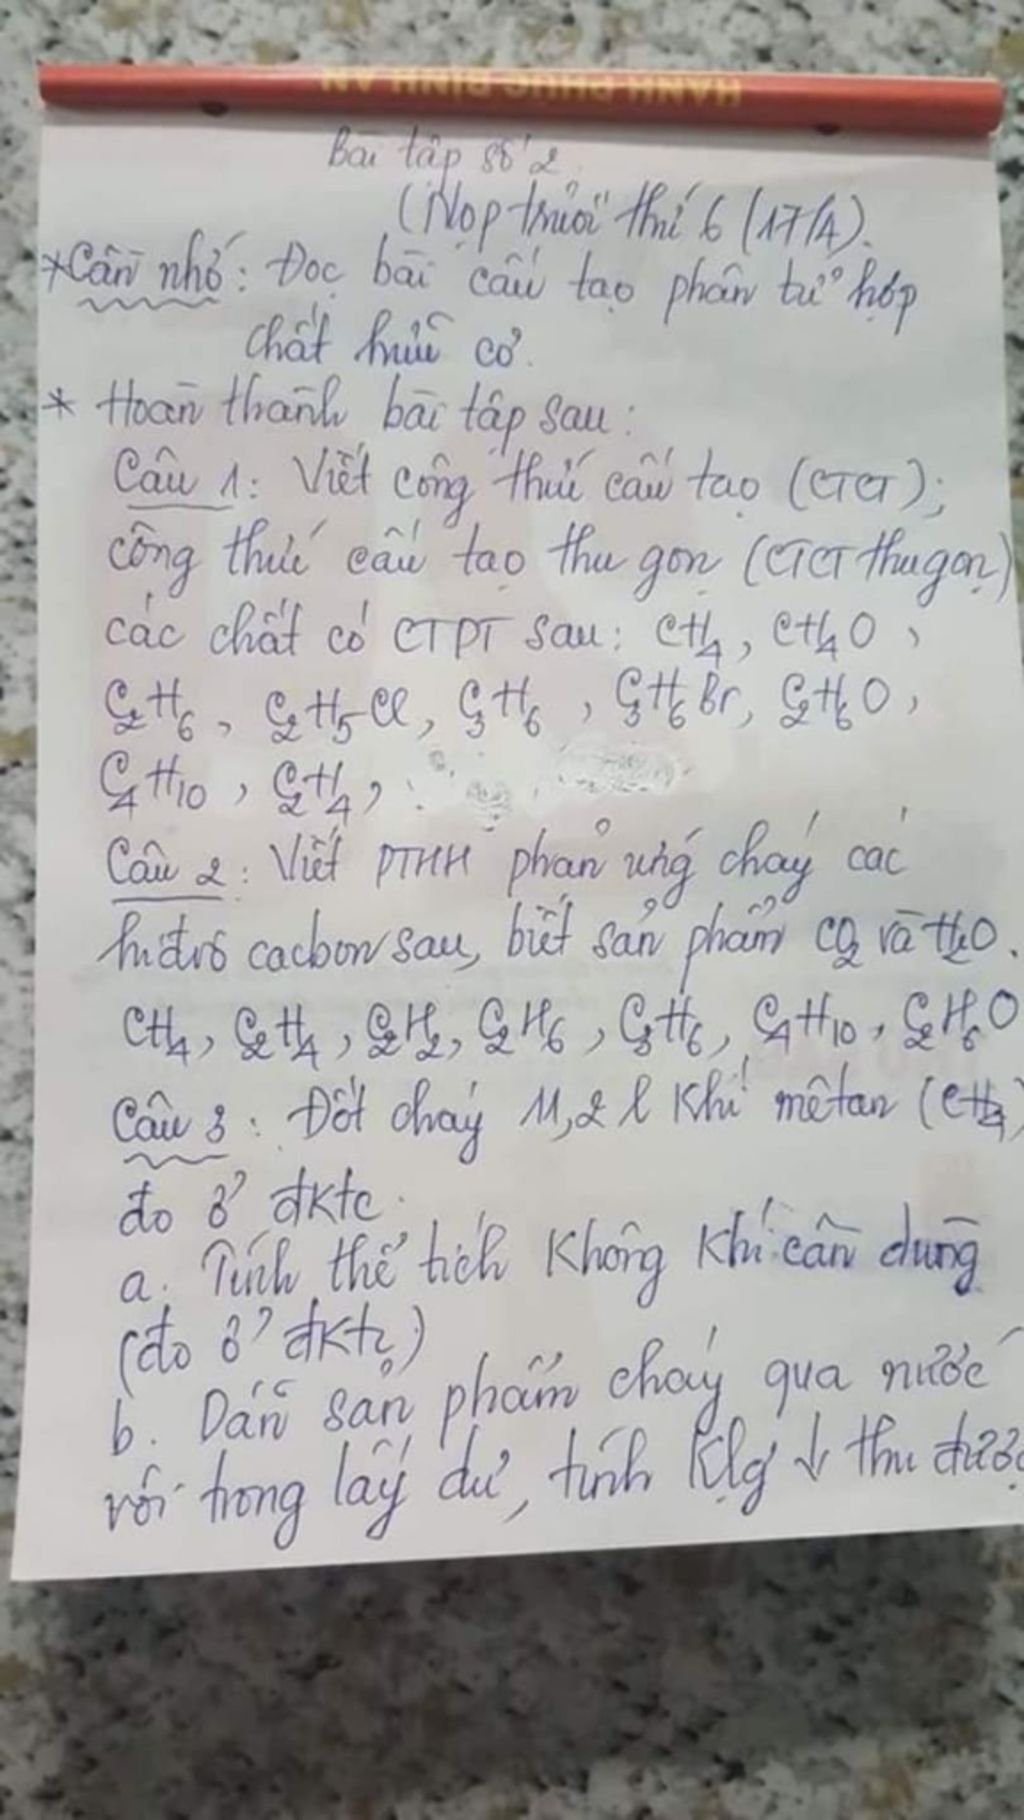 HẠNH PHÚC BÌNH AN
Bài tập số 2.
(Nộp trước thứ 6 (17/4).
*Cần nhớ: Đọc bài cấu tạo phân tử hợp
chất hữu cơ.
* Hoàn thành bài tập sau:
Câu 1: Viết công thức cấu tạo (CTCT);
công thức cấu tạo thu gọn (CTCT thu gọn)
các chất có CTPT sau: CH₄, CH₄O,
C₂H₆, C₂H₅Cl, C₃H₆, C₃H₆Br, C₂H₆O,
C₄H₁₀, C₂H₄,
Câu 2: Viết PTHH phản ứng cháy các
hiđrô cacbon sau, biết sản phẩm CO₂ và H₂O.
CH₄, C₂H₄, C₂H₂, C₂H₆, C₃H₆, C₄H₁₀, C₂H₆O
Câu 3: Đốt cháy 11,2 l khí mêtan (CH₄)
đo ở đktc.
a. Tính thể tích không khí cần dùng
(đo ở đktc)
b. Dẫn sản phẩm cháy qua nước
vôi trong lấy dư, tính klg ↓ thu được